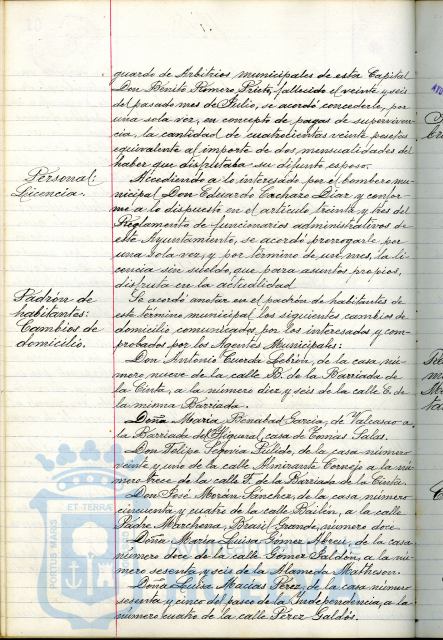 guardo de Arbitrios municipales de esta Capital
Don Benito Romero Prieto, fallecido el veinte y seis
del pasado mes de Julio, se acordó concederle, por
una sola vez, en concepto de pagas de superviven-
cia, la cantidad de cuatrocientas veinte pesetas
equivalente al importe de dos mensualidades del
haber que disfrutaba su difunto esposo.
Personal:
Licencia.
Accediendo a lo interesado por el bombero mu-
nicipal Don Eduardo Cachazo Díaz y confor-
me a lo dispuesto en el artículo treinta y tres del
Reglamento de funcionarios administrativos de
este Ayuntamiento, se acordó prorrogarle por
una sola vez, y por término de un mes, la li-
cencia sin sueldo, que para asuntos propios,
disfruta en la actualidad.
Padrón de
habitantes:
Cambios de
domicilio.
Se acordó anotar en el padrón de habitantes de
este término municipal los siguientes cambios de
domicilio comunicados por los interesados y com-
probados por los Agentes Municipales:
Don Antonio Cuerda Lebrón, de la casa nú-
mero nueve de la calle B. de la Barriada de
la Cinta, a la número diez y seis de la calle C. de
la misma Barriada.
Doña María Benabad García, de Valcasao a,
la Barriada del Higueral, casa de Tomás Salas.
Don Felipe Segovia Pulido, de la casa número
veinte y uno de la calle Almirante Cornejo a la nú-
mero trece de la calle F. de la Barriada de la Cinta.
Don José Morán Sánchez, de la casa número
cincuenta y cuatro de la calle Bailén, a la calle
Padre Marchena, Brasil Grande, número doce.
Doña María Luisa Gómez Abreu, de la casa
número doce de la calle Gómez Jaldón, a la nú-
mero sesenta y seis de la Alameda Matheson.
Doña Luisa Macías Pérez, de la casa número
sesenta y cinco del paseo de la Independencia, a la
número cuatro de la calle Pérez Galdós.
PORTUS MARIS
ET TERRAE